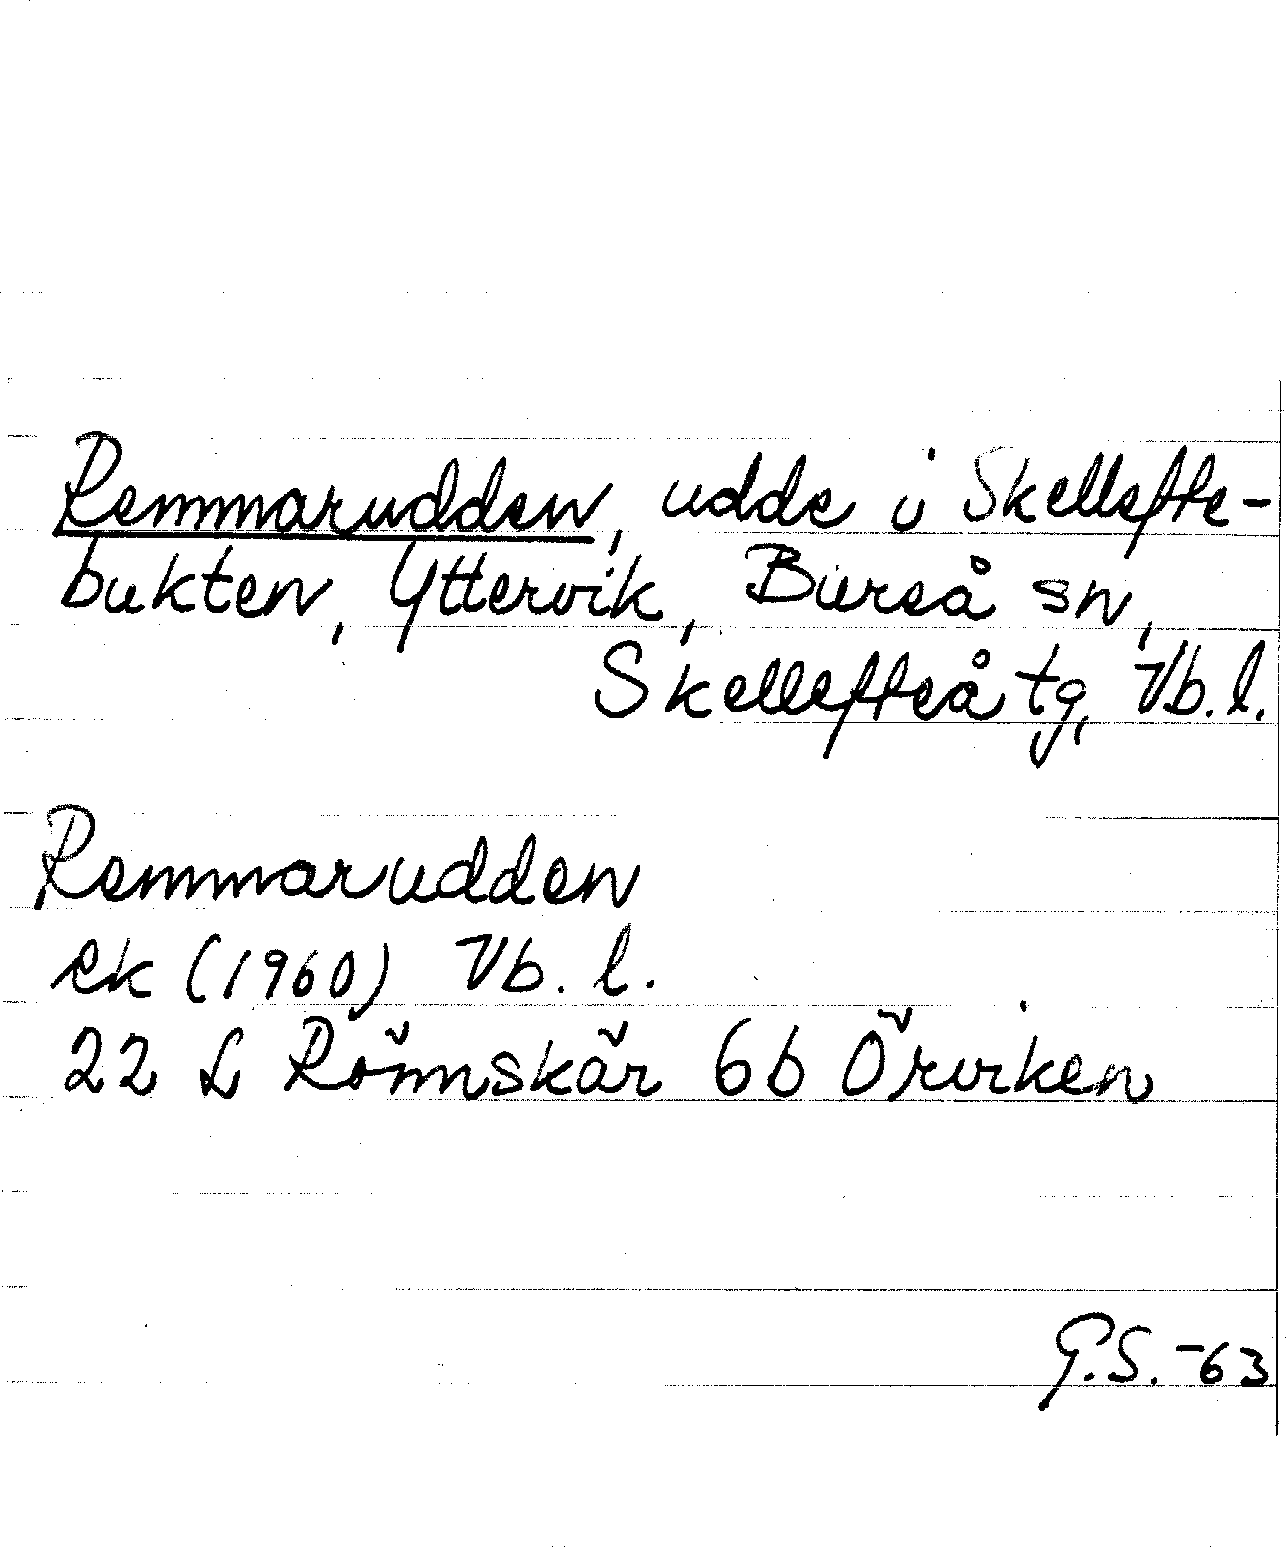 Remmarudden, udde i Skellefte-
bukten, Yttervik, Bureå sn,
Skellefteå tg, Vb. l.
Remmarudden
ek (1960) Vb. l.
22 L Rönnskär 6b Örviken
G.S. -63